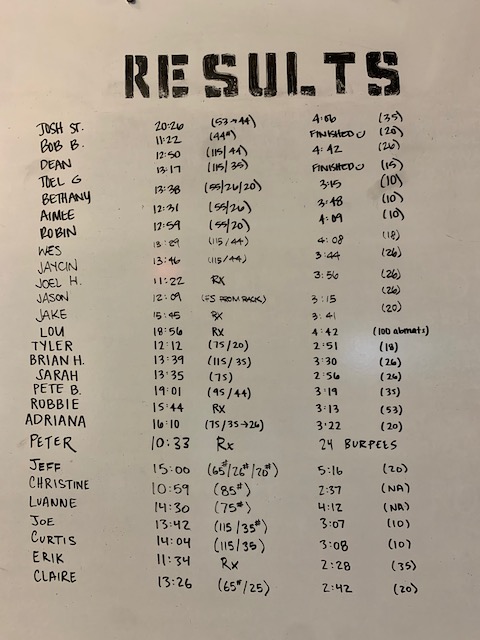 RESULTS
JOSH ST. 20:26 (53→44) 4:06 (35)
BOB B. 11:22 (44#) FINISHED (20)
DEAN 12:50 (115/44) 4:42 (26)
JOEL G 13:17 (115/35) FINISHED (15)
BETHANY 13:38 (55/26/20) 3:15 (10)
AIMEE 12:31 (55/26) 3:48 (10)
ROBIN 12:59 (55/20) 4:09 (10)
WES 13:29 (115/44) 4:08 (18)
JAYCIN 13:46 (115/44) 3:44 (26)
JOEL H. 11:22 RX 3:56 (26)
JASON 12:09 (FS FROM RACK) 3:15 (26)
JAKE 15:45 RX 3:41 (20)
LOU 18:56 RX 4:42 (100 abmats)
TYLER 12:12 (75/20) 2:51 (18)
BRIAN H. 13:39 (115/35) 3:30 (26)
SARAH 13:35 (75) 2:56 (26)
PETE B. 19:01 (95/44) 3:19 (35)
ROBBIE 15:44 RX 3:13 (53)
ADRIANA 16:10 (75/35→26) 3:22 (20)
PETER 10:33 Rx 24 BURPEES
JEFF 15:00 (65#/26#/20#) 5:16 (20)
CHRISTINE 10:59 (85#) 2:37 (NA)
LUANNE 14:30 (75#) 4:12 (NA)
JOE 13:42 (115/35#) 3:07 (10)
CURTIS 14:04 (115/35) 3:08 (10)
ERIK 11:34 Rx 2:28 (35)
CLAIRE 13:26 (65#/25) 2:42 (20)